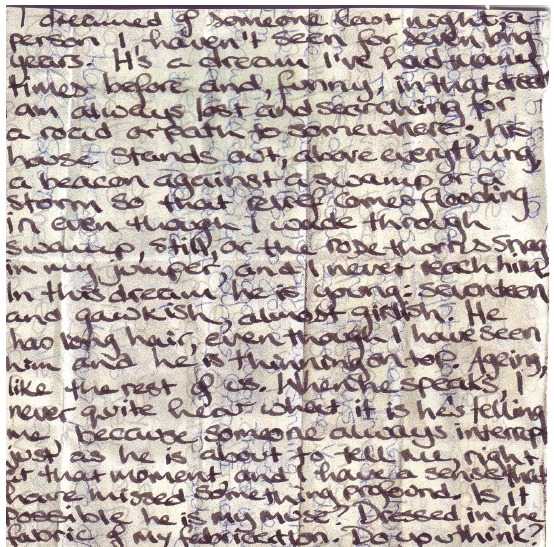 I dreamed of someone last night, a
person I haven't seen for seven long
years. It's a dream I've had many
times before and, funny, in that dream
I am always lost and searching for
a road or path to somewhere. his
house stands out, above everything,
a beacon against a swamp or a
storm so that relief comes flooding
in even though I wade through
swamp, still, or the rose thorns snag
in my jumper, and I never reach him.
In this dream, he is young: seventeen
and gawkish, almost girlish. He
has long hair, even though I have seen
him and he is thinning on top. Ageing,
like the rest of us. When he speaks, I
never quite hear what it is he's telling
me, because someone always interrupts
just as he is about to tell me, right
at that moment and I have a sense that
have missed something profound. Is it
possible he is my muse? Dressed in the
fabric of my fabrication. Do you think?